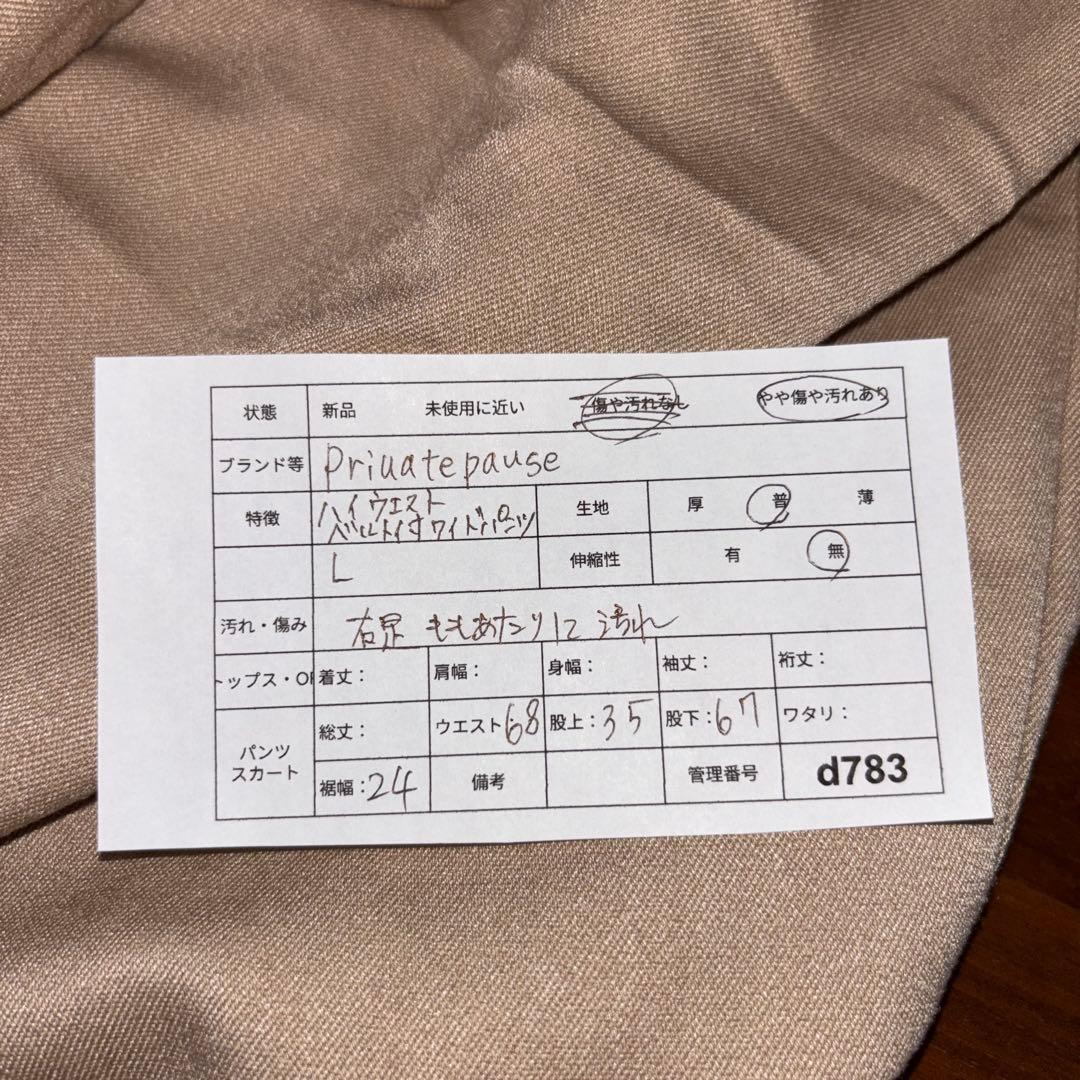 状態 新品 未使用に近い 傷や汚れなし やや傷や汚れあり
ブランド等 Priuatepause
特徴 ハイウエスト 生地 厚 普 薄
ベルト付ワイドパンツ
L 伸縮性 有 無
汚れ・傷み 右足 ももあたりに汚れ
トップス・OP 着丈： 肩幅： 身幅： 袖丈： 裄丈：
パンツ 総丈： ウエスト：68 股上：35 股下：67 ワタリ：
スカート 裾幅：24 備考 管理番号 d783